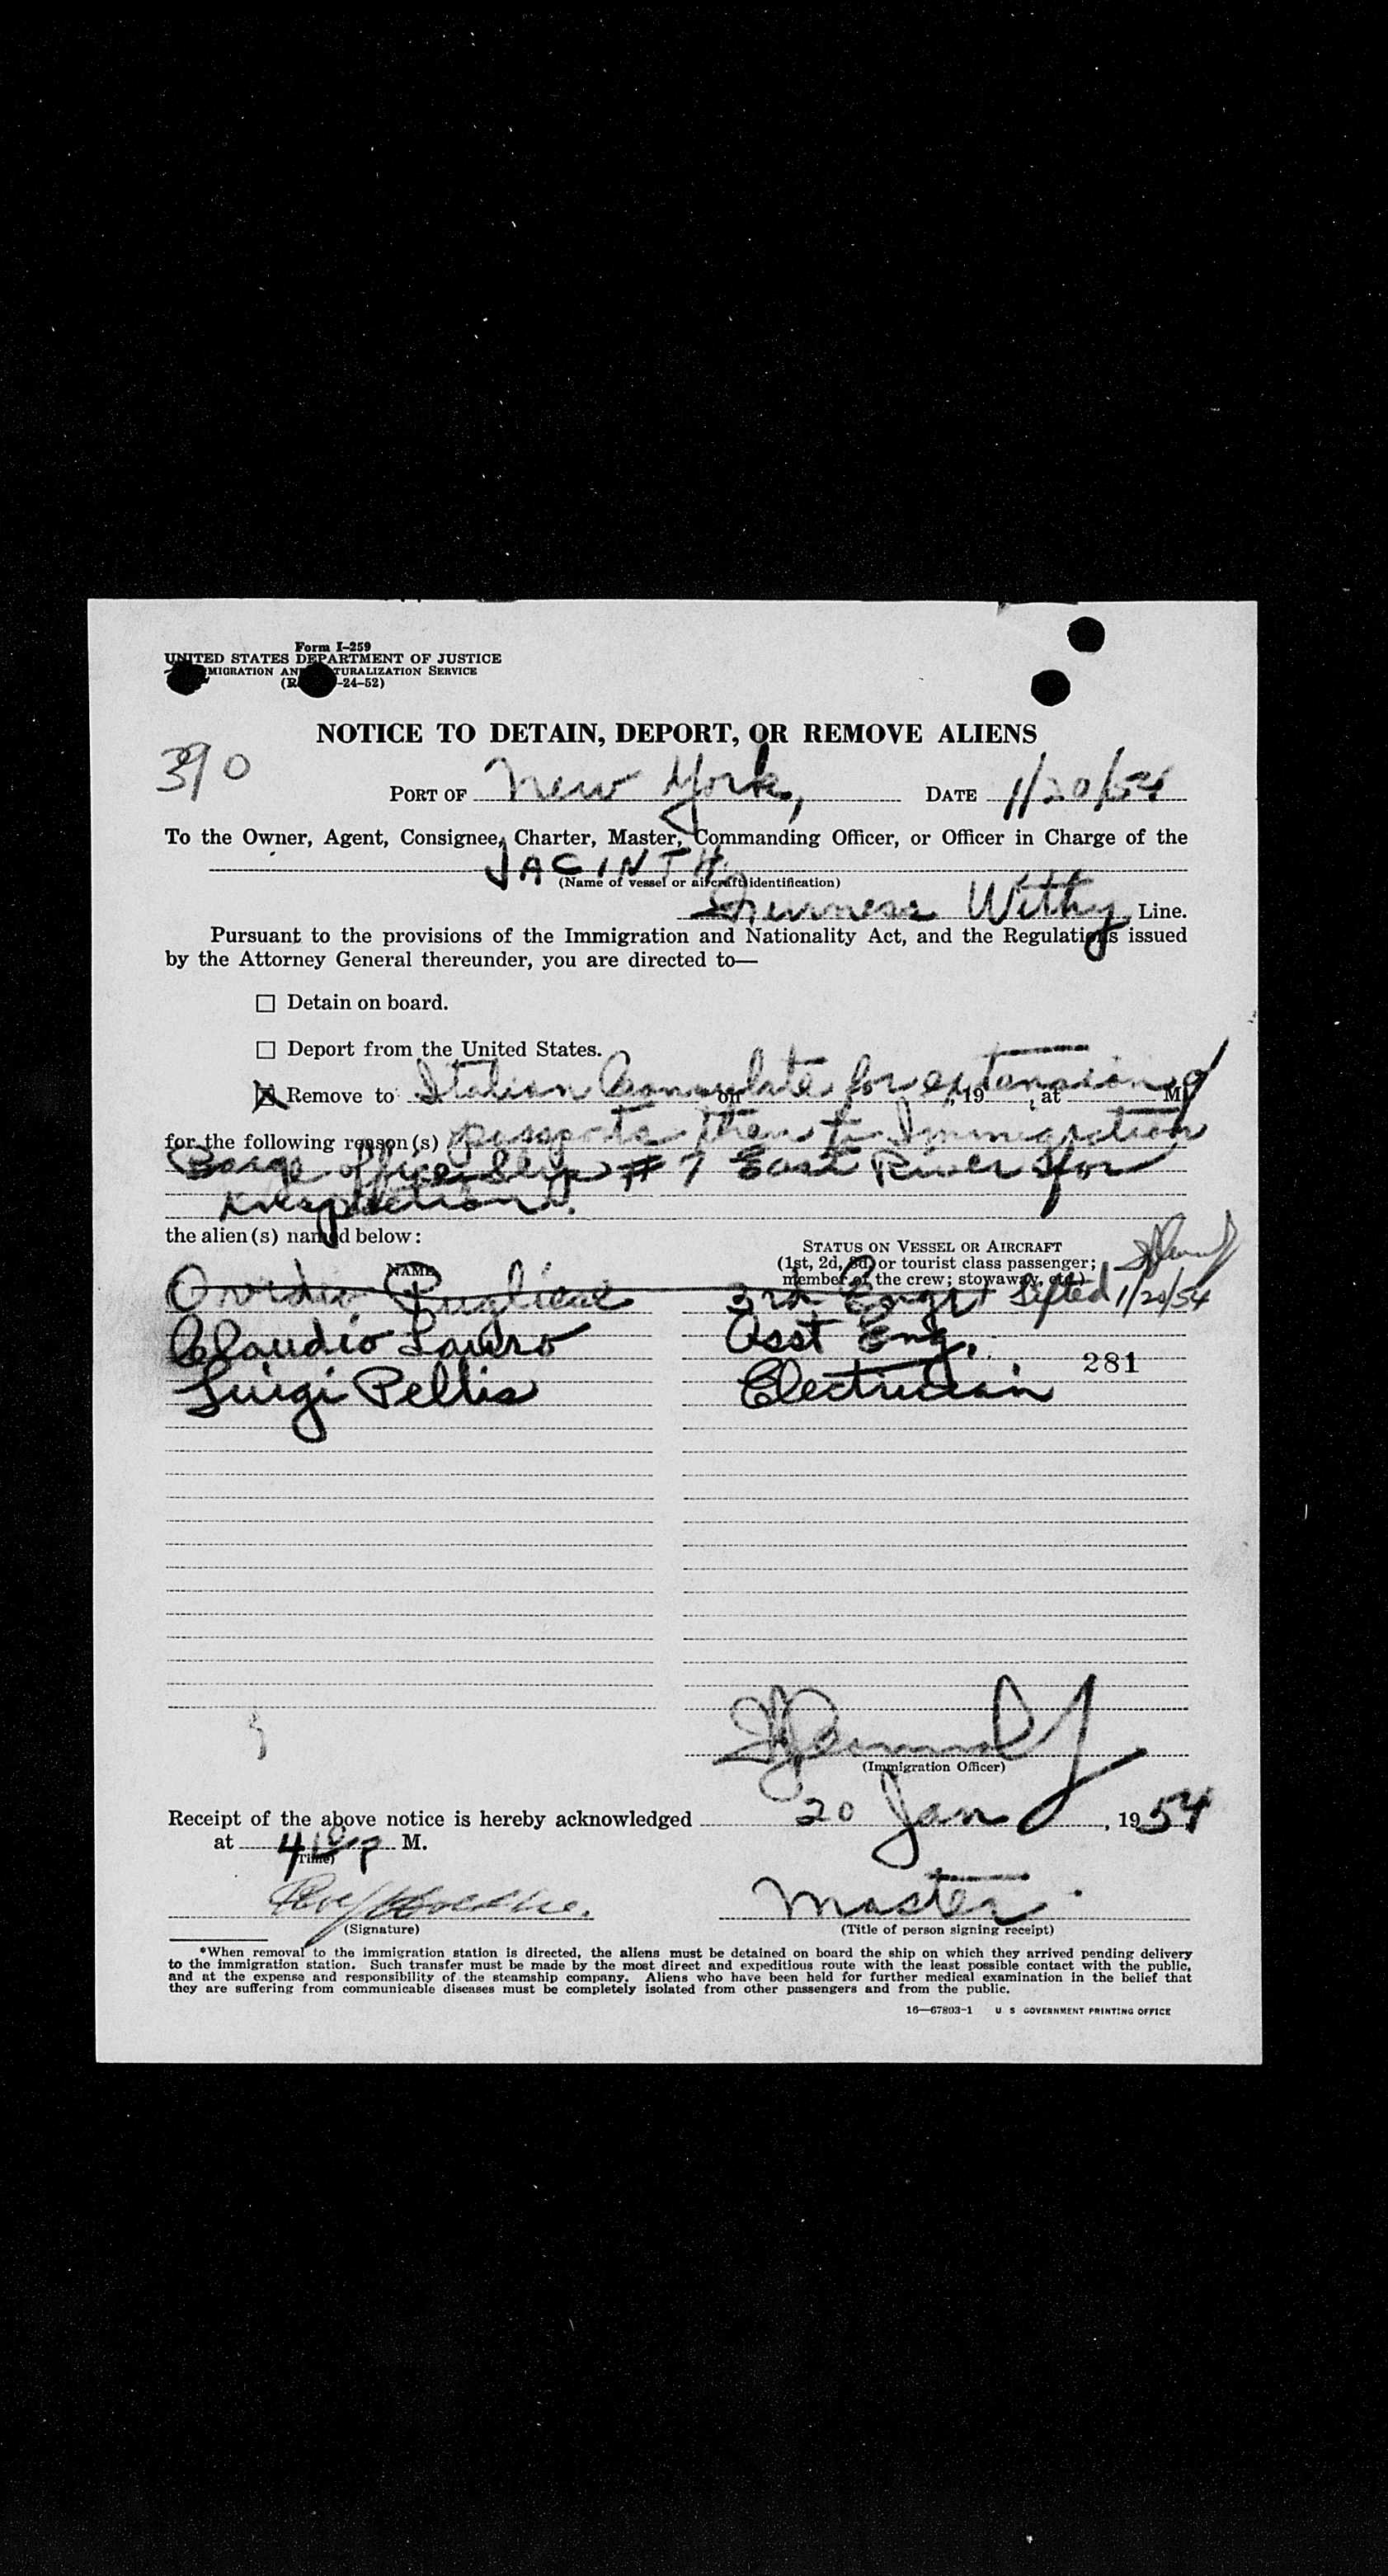 Form I-259
UNITED STATES DEPARTMENT OF JUSTICE
MIGRATION AN TURALIZATION SERVICE
-24-52)
NOTICE TO DETAIN, DEPORT, OR REMOVE ALIENS
390
PORT OF New York, DATE 1/20/54
To the Owner, Agent, Consignee, Charter, Master, Commanding Officer, or Officer in Charge of the
JACINTH
(Name of vessel or aircraft identification)
Furness Withy Line.
Pursuant to the provisions of the Immigration and Nationality Act, and the Regulations issued
by the Attorney General thereunder, you are directed to—
☐ Detain on board.
☐ Deport from the United States.
☒ Remove to Italian Consulate for extension of on , 19 , at M
for the following reason(s) passports then to Immigration
Barge office Slip # 7 East River for
inspection.
the alien(s) named below:
STATUS ON VESSEL OR AIRCRAFT
(1st, 2d, 3d, or tourist class passenger;
NAME member of the crew; stowaway, etc.)
3rd Engr Lifted 1/20/54
Claudio Lauro Asst Eng.
281
Luigi Pellis Electrician
(Immigration Officer)
Receipt of the above notice is hereby acknowledged 20 Jan , 1954
at M.
(Time)
Master
(Signature) (Title of person signing receipt)
*When removal to the immigration station is directed, the aliens must be detained on board the ship on which they arrived pending delivery
to the immigration station. Such transfer must be made by the most direct and expeditious route with the least possible contact with the public,
and at the expense and responsibility of the steamship company. Aliens who have been held for further medical examination in the belief that
they are suffering from communicable diseases must be completely isolated from other passengers and from the public.
16—67803-1 U S GOVERNMENT PRINTING OFFICE